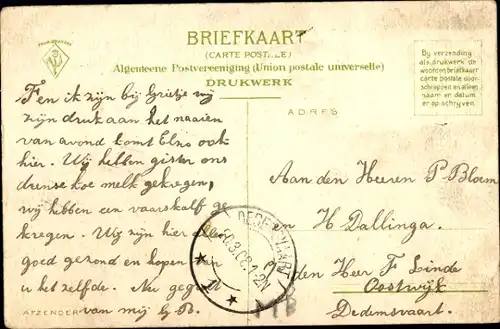 BRIEFKAART
(CARTE POSTALE)
Algemeene Postvereeniging (Union postale universelle)
DRUKWERK
ADRES
By verzending
als drukwerk de
woorden briefkaart
carte postale door-
schrappen en alleen
naam en datum
er op schryven.
Fen ik zijn bij Grietje wij
zijn druk aan het naaien
van avond komt Elno ook
hier. Wij hebben gister ons
drense koe melk gekregen,
wij hebben een vaarskalf ge
kregen. Wij zijn hier allen
goed gezond en hopen van
u het zelfde. Nu gegroet
AFZENDER van mij G. B.
Aan den Heeren P. Blom
en H. Dallinga.
den Heer F. Linde
Oostwijk
Dedemsvaart.
DEDEMSVAART